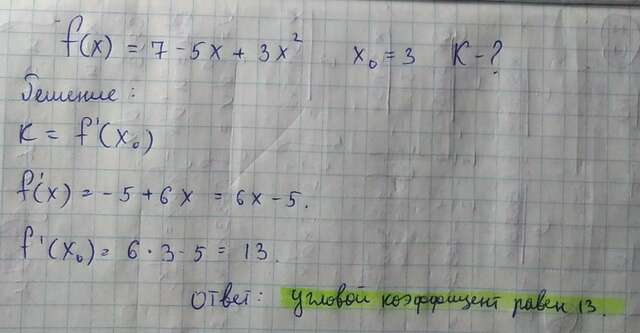 f(x) = 7 - 5x + 3x² x₀ = 3 K - ?
Решение:
K = f'(x₀)
f'(x) = -5 + 6x = 6x - 5.
f'(x₀) = 6 · 3 - 5 = 13.
Ответ: угловой коэффициент равен 13.